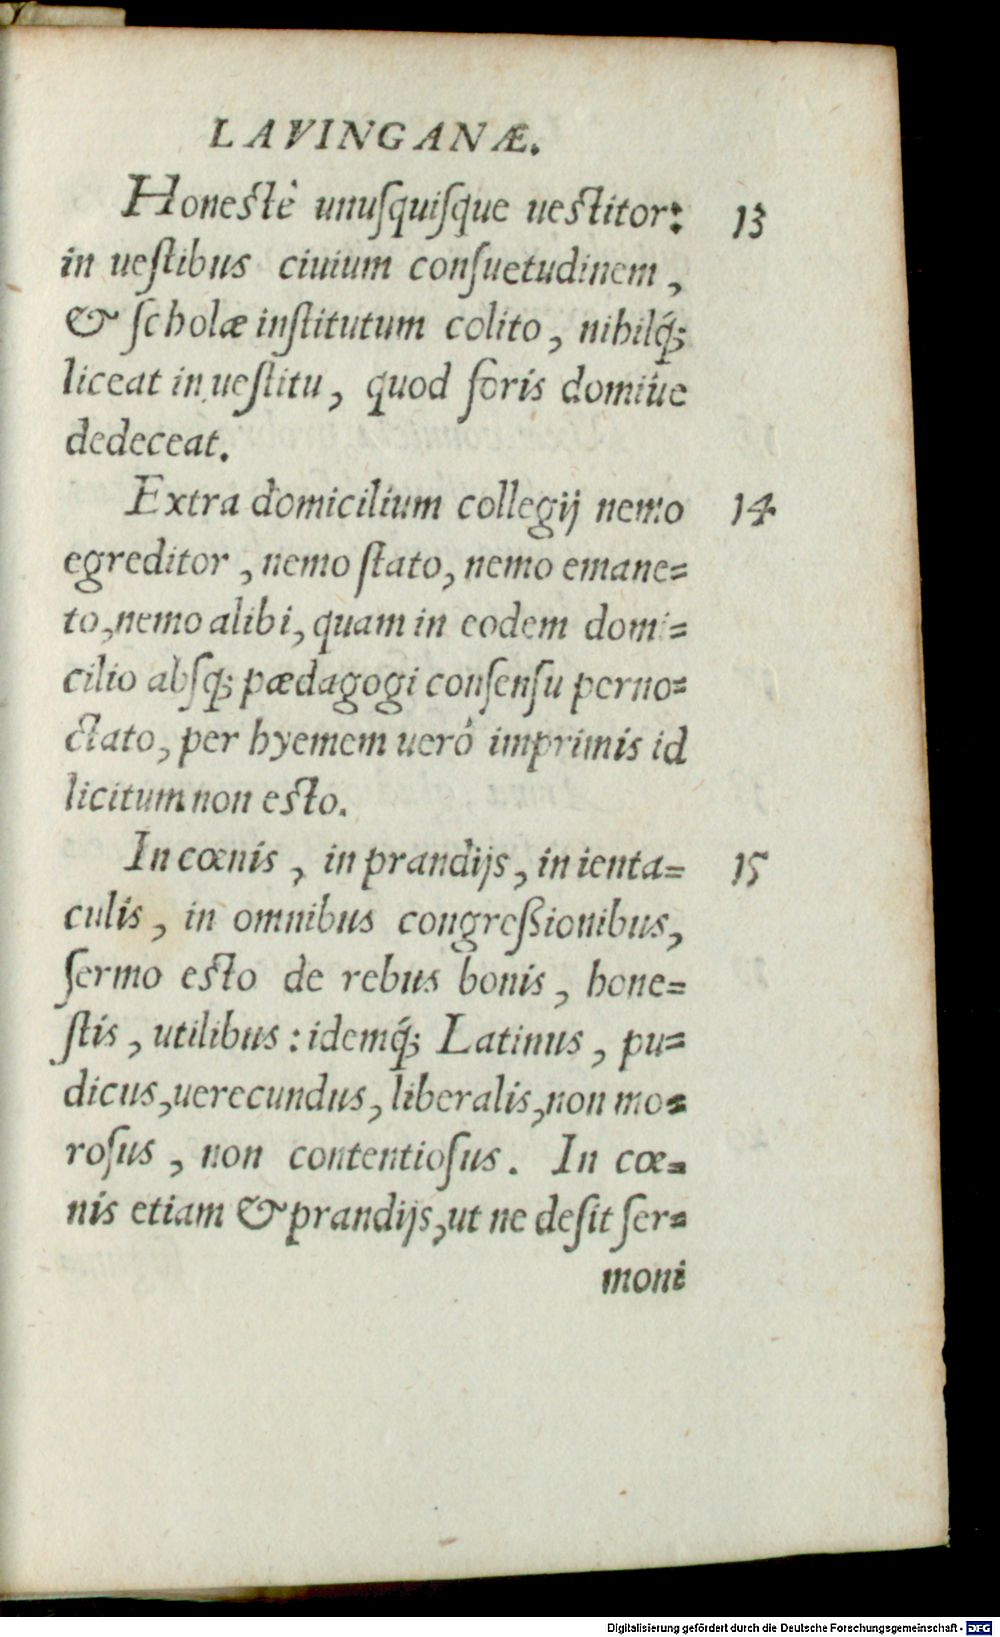 LAVINGANÆ.
Honestè unuſquiſque ueſtitor: 13
in ueſtibus ciuium conſuetudinem,
& ſcholæ inſtitutum colito, nihilq́;
liceat in ueſtitu, quod foris domiúe
dedeceat.
Extra domicilium collegij nemo 14
egreditor, nemo ſtato, nemo emane=
to, nemo alibi, quam in eodem domi=
cilio abſq; pædagogi conſenſu perno=
ctato, per hyemem ueró imprimis id
licitum non esto.
In cœnis, in prandijs, in ienta= 15
culis, in omnibus congreßionibus,
ſermo esto de rebus bonis, hone=
ſtis, utilibus: idemq́; Latinus, pu=
dicus, uerecundus, liberalis, non mo=
roſus, non contentioſus. In cœ=
nis etiam & prandijs, ut ne deſit ſer=
moni
Digitalisierung gefördert durch die Deutsche Forschungsgemeinschaft - DFG